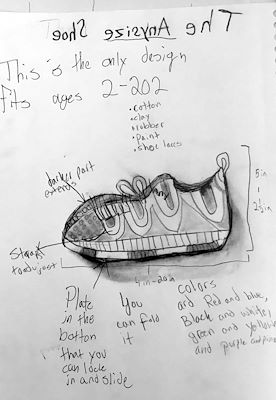 The Anysize Shoe
This is the only design
fits ages 2-202
• cotton
• clay
• rubber
• paint
• shoe laces
darker part
extends
5 in
|
2½ in
4 in-20 in
Plate
in the
bottom
that you
can lock
in and slide
You
can fold
it
colors
are Red and blue,
Black and white,
green and yellow
and purple and pink